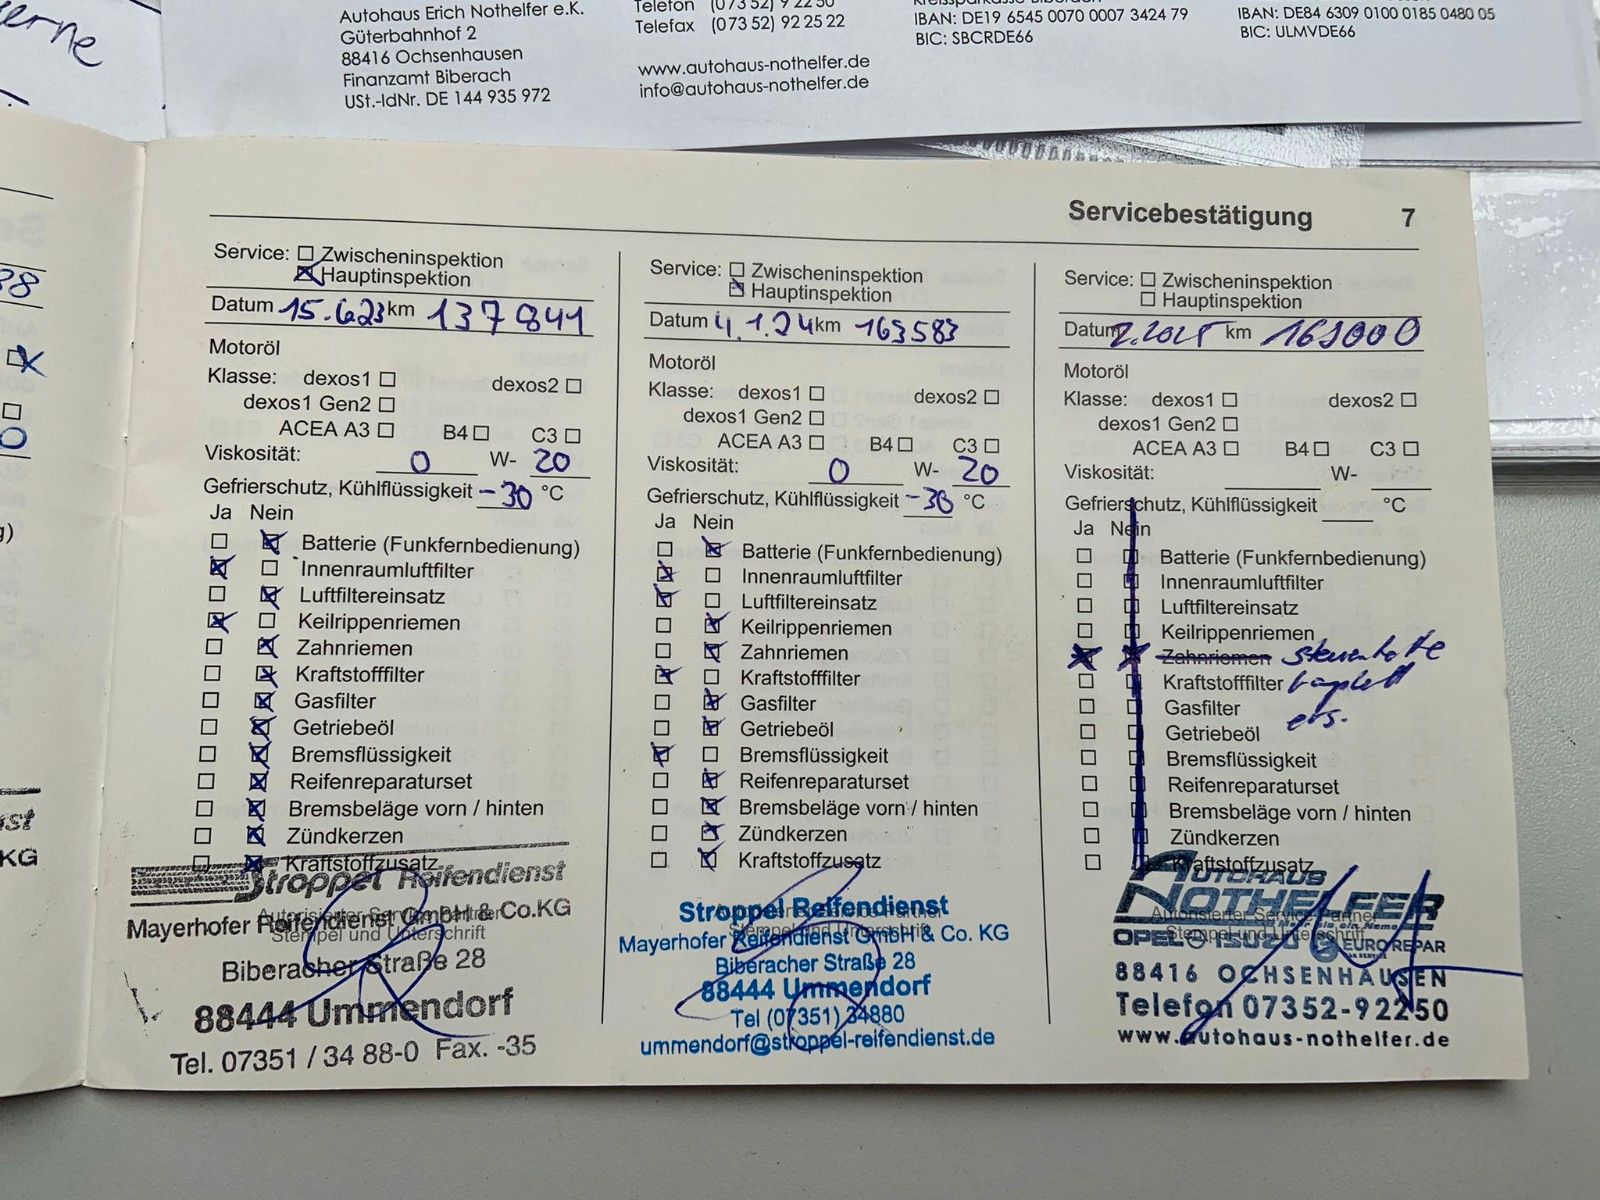 erne
Autohaus Erich Nothelfer e.K.
Güterbahnhof 2
88416 Ochsenhausen
Finanzamt Biberach
USt.-IdNr. DE 144 935 972
Telefon (073 52) 9 22 50
Telefax (073 52) 92 25 22
www.autohaus-nothelfer.de
info@autohaus-nothelfer.de
Kreissparkasse Biberach
IBAN: DE19 6545 0070 0007 3424 79
BIC: SBCRDE66
IBAN: DE84 6309 0100 0185 0480 05
BIC: ULMVDE66
Servicebestätigung 7
Service: Zwischeninspektion
Hauptinspektion
Datum 15.6.23 km 137841
Motoröl
Klasse: dexos1 dexos2
dexos1 Gen2
ACEA A3 B4 C3
Viskosität: 0 W- 20
Gefrierschutz, Kühlflüssigkeit -30 °C
Ja Nein
Batterie (Funkfernbedienung)
Innenraumluftfilter
Luftfiltereinsatz
Keilrippenriemen
Zahnriemen
Kraftstofffilter
Gasfilter
Getriebeöl
Bremsflüssigkeit
Reifenreparaturset
Bremsbeläge vorn / hinten
Zündkerzen
Kraftstoffzusatz
Stroppel Reifendienst
Mayerhofer Reifendienst GmbH & Co.KG
Autorisierter Service Partner
Stempel und Unterschrift
Biberacher Straße 28
88444 Ummendorf
Tel. 07351 / 34 88-0 Fax. -35
Service: Zwischeninspektion
Hauptinspektion
Datum 4.1.24 km 163583
Motoröl
Klasse: dexos1 dexos2
dexos1 Gen2
ACEA A3 B4 C3
Viskosität: 0 W- 20
Gefrierschutz, Kühlflüssigkeit -30 °C
Ja Nein
Batterie (Funkfernbedienung)
Innenraumluftfilter
Luftfiltereinsatz
Keilrippenriemen
Zahnriemen
Kraftstofffilter
Gasfilter
Getriebeöl
Bremsflüssigkeit
Reifenreparaturset
Bremsbeläge vorn / hinten
Zündkerzen
Kraftstoffzusatz
Stroppel Reifendienst
Autorisierter Service Partner
Stempel und Unterschrift
Mayerhofer Reifendienst GmbH & Co. KG
Biberacher Straße 28
88444 Ummendorf
Tel (07351) 34880
ummendorf@stroppel-reifendienst.de
Service: Zwischeninspektion
Hauptinspektion
Datum 2.2025 km 169000
Motoröl
Klasse: dexos1 dexos2
dexos1 Gen2
ACEA A3 B4 C3
Viskosität: W-
Gefrierschutz, Kühlflüssigkeit °C
Ja Nein
Batterie (Funkfernbedienung)
Innenraumluftfilter
Luftfiltereinsatz
Keilrippenriemen
Zahnriemen Steuerkette
Kraftstofffilter komplett
Gasfilter ers.
Getriebeöl
Bremsflüssigkeit
Reifenreparaturset
Bremsbeläge vorn / hinten
Zündkerzen
Kraftstoffzusatz
AUTOHAUS
NOTHELFER
Autorisierter Service Partner
Stempel und Unterschrift
OPEL ISUZU EUROREPAR
88416 OCHSENHAUSEN
Telefon 07352-92250
www.autohaus-nothelfer.de